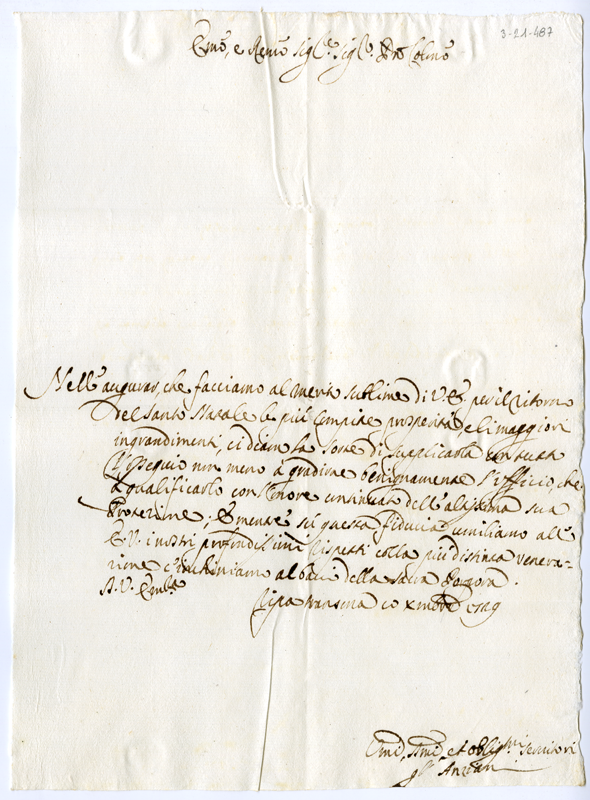 3-21-487
Emo, e Revmo Sigre, Sigr. Pne Colmo
Nell'augurar, che facciamo al merito sublime di V.E. per il ritorno
del Santo Natale le più compite prosperità, e li maggiori
ingrandimenti, ci diam la sorte di supplicarla con tutto
l'Ossequio non meno à gradirne benignamente l'uffitio, che
à qualificarlo con l'onore continuato dell'altissima sua
Protezione; E mentre sù questa fiducia umiliamo all'
E.V. i nostri profondissimi rispetti colla più distinta venera-
zione c'inchiniamo al bacio della Sacra Porpora.
D. V. Emza
Ripa Transona 10 Xmbre 1729
Umi, Dmi, et Obligmi Servitori
Gl' Anziani